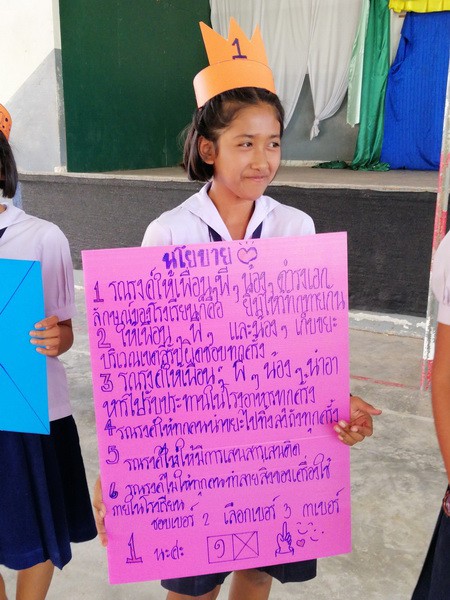 1
นโยบาย
1 รณรงค์ให้เพื่อน, พี่ๆ น้องๆ ดำรงเอก
ลักษณ์ของโรงเรียนก็คือ ยิ้มไหว้ทักทายกัน
2 ให้เพื่อนๆ พี่ๆ และน้องๆ เก็บขยะ
บริเวณเขตรับผิดชอบทุกครั้ง
3 รณรงค์ให้เพื่อนๆ พี่ๆ น้องๆ นำอา
หารไปรับประทานในโรงอาหารทุกครั้ง
4 รณรงค์ให้ทุกคนนำขยะไปทิ้งลงถังทุกครั้ง
5 รณรงค์ไม่ให้มีการเสพสารเสพติด
6 รณรงค์ไม่ให้ทุกคนทำลายสิ่งของเครื่องใช้
ภายในโรงเรียน
ชอบเบอร์ 2 เลือกเบอร์ 3 กาเบอร์
1 นะคะ ๑